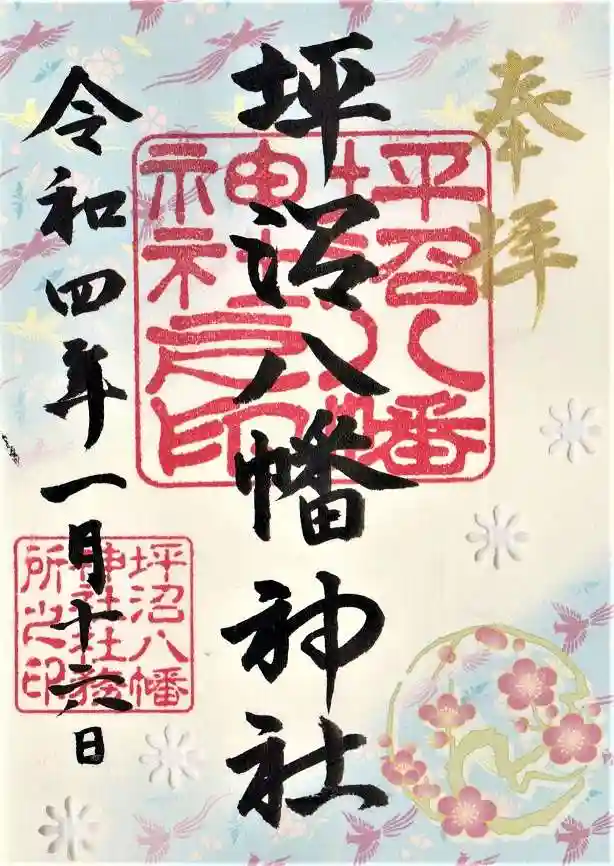 奉拝
坪沼八幡神社
坪沼八幡
神社之印
令和四年一月十六日
坪沼八幡
神社社務
所之印